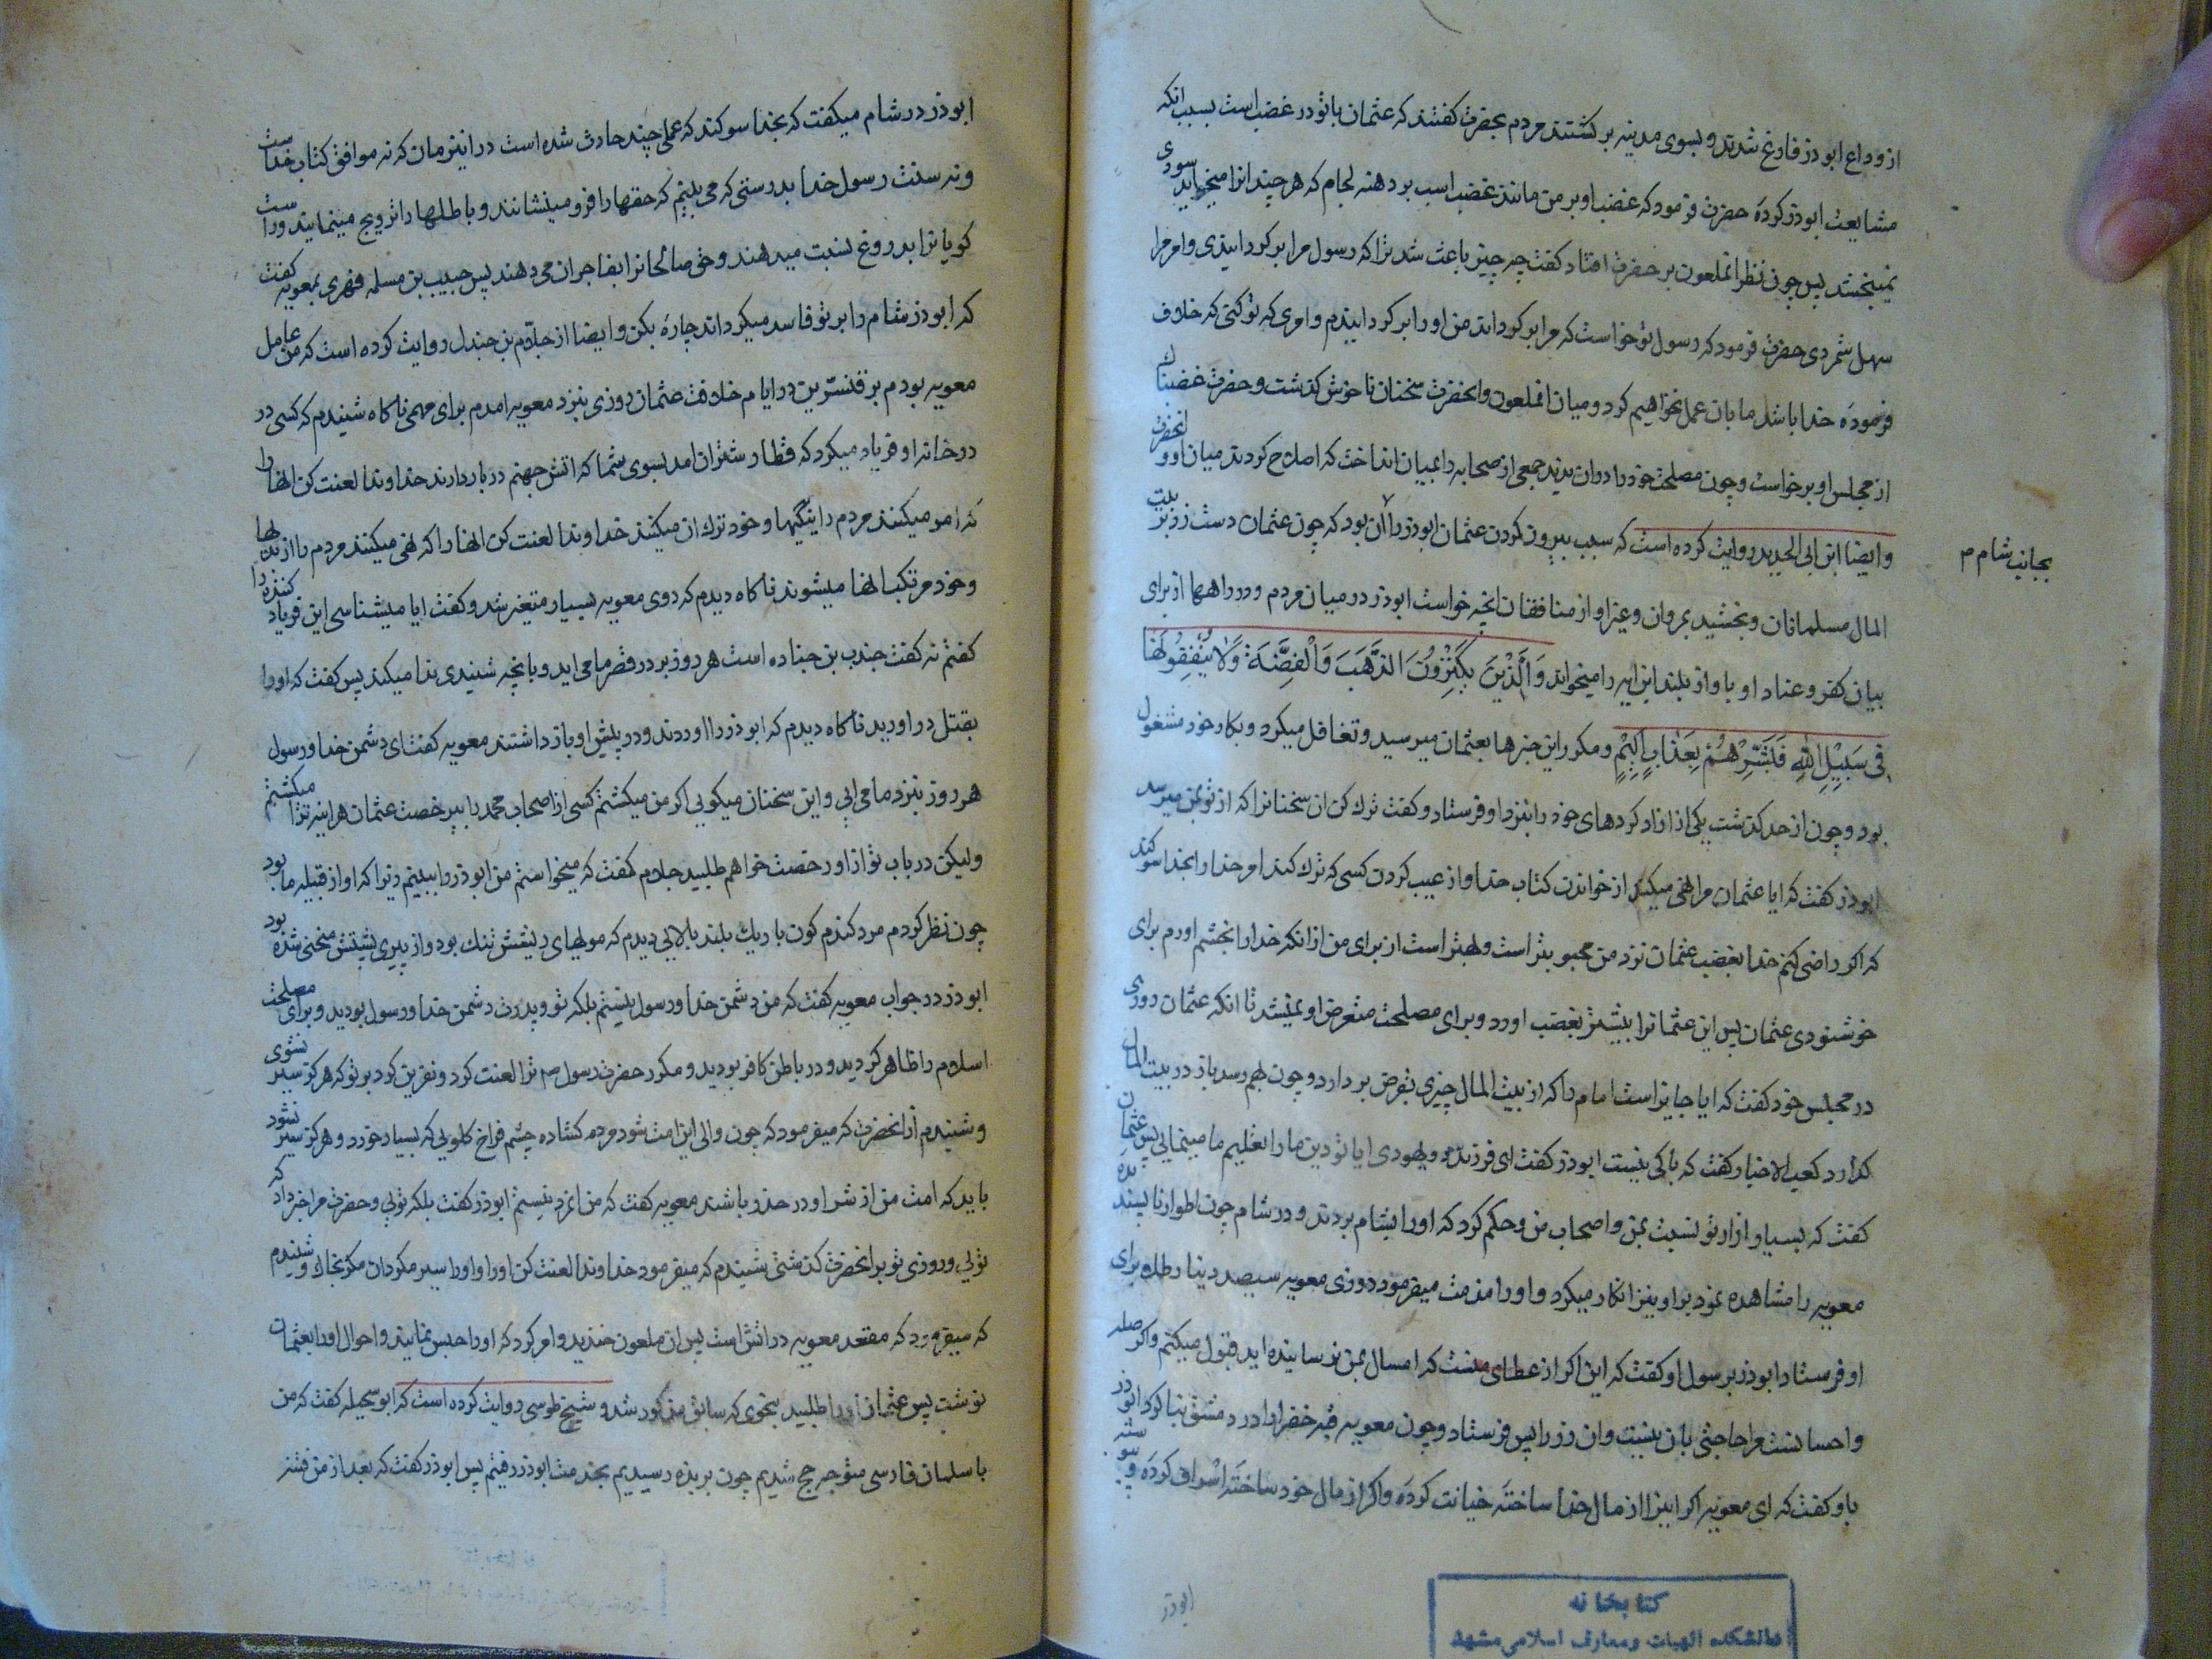 از وداع ابوذر فارغ شدند و بسوی مدینه برکشتند مردم بحضرت کفتند که عثمان باتو در غضب است بسبب انکه
مشایعت ابوذر کردهٔ حضرت فرمود که غضب او بر من مانند غضب اسب بر دهنه لجام که هر چند انرا میخواید سودی
نمیبخشد پس چون نظر انملعون بر حضرت افتاد کفت چه چیز باعث شد ترا که رسول مرا بر کردانیدی و امر مرا
سهل شمردی حضرت فرمود که رسول تو خواست که مرا بر کرداند من او را بر کردانیدم و امری که تو کنی که خلاف
فرمودهٔ خدا باشد ما بان عمل نخواهیم کرد و میان انملعون و انحضرت سخنان ناخوش کذشت و حضرت غضبناک
از مجلس او برخواست و چون مصلحت خود را دران ندید جمعی از صحابه را بمیان انداخت که اصلاح کردند میان او و انحضرت
و ایضا ابن ابی الحدید روایت کرده است که سبب بیرون کردن عثمان ابوذر را ان بود که چون عثمان دست زد بر بیت
بجانب شام م
المال مسلمانان و بخشید بمروان و غیر او از منافقان انچه خواست ابوذر در میان مردم و در راهها از برای
بیان کفر و عناد او باواز بلند این ایه را میخواند وَالَّذِیْنَ یَکْنِزُوْنَ الذَّهَبَ وَالْفِضَّةَ وَلَا یُنْفِقُوْنَهَا
فِی سَبِیْلِ اللّٰهِ فَبَشِّرْهُمْ بِعَذَابٍ اَلِیْمٍ و مکرر این خبرها بعثمان میرسید و تغافل میکرد و بکار خود مشغول
بود و چون از حد کذشت یکی از ازاد کردهای خود را بنزد او فرستاد و کفت ترک کن ان سخنانرا که از تو بمن میرسد
ابوذر کفت که ایا عثمان مرا نهی میکند از خواندن کتاب خدا و از عیب کردن کسی که ترک کند امر خدا را بخدا سوکند
که اکر راضی کنم خدا را بغضب عثمان نزد من محبوبتر است و بهتر است از برای من از انکه خدا را بخشم اورم برای
خوشنودی عثمان پس این عثمانرا بیشتر بغضب اورد و برای مصلحت متعرض او نمیشد تا انکه عثمان روزی
در مجلس خود کفت که ایا جایز است امام را که از بیت المال چیزی بقرض بردارد و چون بهم رسد باز در بیت المال
کذارد کعب الاخبار کفت که باکی نیست ابوذر کفت ای فرزند دو یهودی ایا تو دین ما را تعلیم ما مینمایی پس عثمان
کفت که بسیار ازار تو نسبت بمن و اصحاب من وحکم کرد که او را بشام بردند و در شام چون اطوار ناپسندیده
معویه را مشاهده نمود بر او نیز انکار میکرد و او را مذمت میفرمود روزی معویه سیصد دینار طلا برای
او فرستاد ابوذر برسول او کفت که این اکر از عطای منست که امسال بمن نرسانیده اید قبول میکنم و اکر صله
و احسانست مرا حاجتی بان نیست و ان زر را پس فرستاد و چون معویه قبه خضرا را در دمشق بنا کرد ابوذر
باو کفت که ای معویه اکر اینرا از مال خدا ساختهٔ خیانت کردهٔ و اکر از مال خود ساختهٔ اسراف کردهٔ و پیوسته
ابوذر
کتابخانه
دانشکده الهیات و معارف اسلامی مشهد
ابوذر در شام میکفت که بخدا سوکند که عملی چند حادث شده است در اینزمان که نه موافق کتاب خداست
و نه سنت رسول خدا بدرستی که می بینم که حقها را فرو مینشانند و باطلها را ترویج مینمایند و راست
کویانرا بدروغ نسبت میدهند و حق صالحانرا بفاجران می دهند پس حبیب بن مسلمه فهری بمعویه کفت
که ابوذر شام را بر تو فاسد میکرداند چارهٔ بکن و ایضا از جلام بن جندل روایت کرده است که من عامل
معویه بودم بر قنسرین در ایام خلافت عثمان روزی بنزد معویه امدم برای مهمی ناکاه شنیدم که کسی در
در خانه او فریاد میکرد که قطار شتران امد بسوی شما که اتش جهنم در بار دارند خداوندا لعنت کن انها را
که امر میکنند مردم را بنیکیها و خود ترک ان میکنند خداوندا لعنت کن انها را که نهی میکنند مردم را از بدیها
و خود مرتکب انها میشوند ناکاه دیدم که روی معویه بسیار متغیر شد و کفت ایا میشناسی این فریاد کننده را
کفتم نه کفت جندب بن جناده است هر روز بر در قصر ما می اید و بانچه شنیدی ندا میکند پس کفت که او را
بقتل در اورید ناکاه دیدم که ابوذر را اوردند و در پیش او باز داشتند معویه کفت ای دشمن خدا و رسول
هر روز بنزد ما می ایی و این سخنان میکویی اکر من میکشتم کسی از اصحاب محمد را بی رخصت عثمان هراینه ترا میکشتم
ولیکن در باب تو از او رخصت خواهم طلبید جلام کفت که میخواستم من ابوذر را ببینم زیرا که او از قبیله ما بود
چون نظر کردم مرد کندم کون باریک بلند بالایی دیدم که مویهای ریشش تنک بود و از پیری پشتش منحنی شده بود
ابوذر در جواب معویه کفت که من دشمن خدا و رسول نیستم بلکه تو و پدرت دشمن خدا و رسول بودید و برای مصلحت
اسلام را ظاهر کردید و در باطن کافر بودید و مکرر حضرت رسول ص ترا لعنت کرد و نفرین کرد بر تو که هرکز سیر نشوی
و شنیدم از انحضرت که میفرمود که چون والی این امت شود مرد کشاده چشم فراخ کلویی که بسیار خورد و هرکز سیر نشود
باید که امت من از شر او در حذر باشند معویه کفت که من انمرد نیستم ابوذر کفت بلکه تویی و حضرت مرا خبر داد که
تویی و روزی تو بر انحضرت کذشتی شنیدم که میفرمود خداوندا لعنت کن او را و او را سیر مکردان مکر بخاک و شنیدم
که میفرمود که مقعد معویه در اتش است پس ان ملعون خندید و امر کرد که او را حبس نمایند و احوال او را بعثمان
نوشت پس عثمان او را طلبید بنحوی که سابق مذکور شد و شیخ طوسی روایت کرده است که ابو سحیله کفت که من
با سلمان فارسی متوجه حج شدیم چون بربذه رسیدیم بخدمت ابوذر رفتیم پس ابوذر کفت که بعد از من فتنه